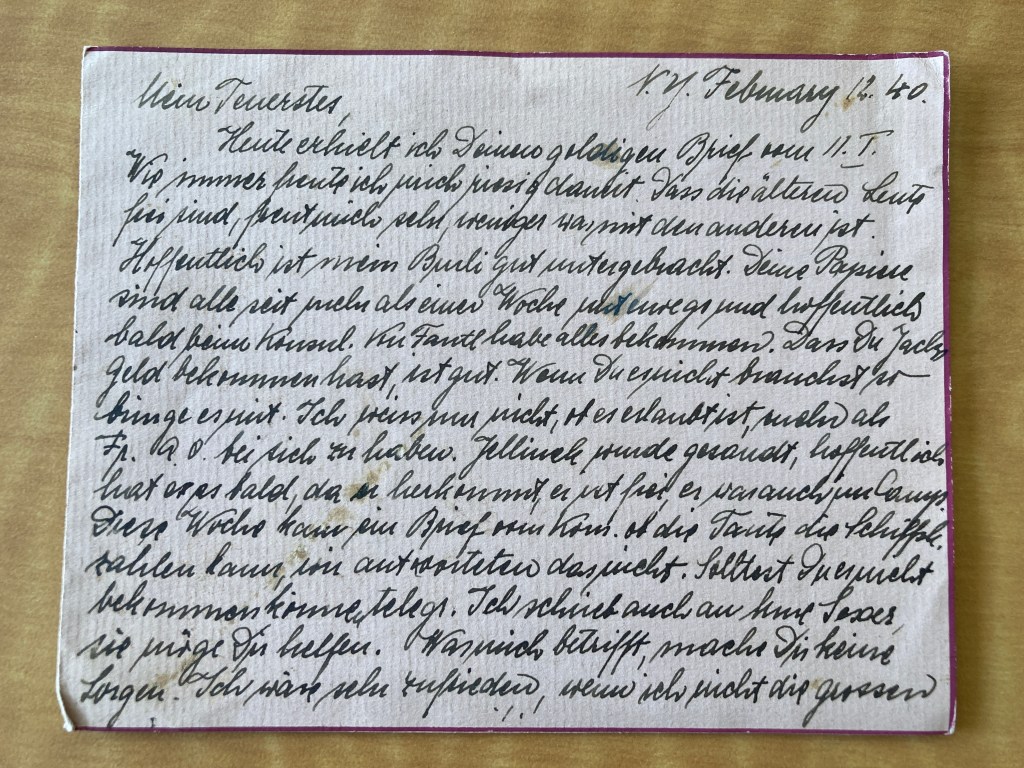 N.Y. February 12. 40.
Mein Teuerstes,
Heute erhielt ich Deinen goldigen Brief vom 11. I.
Wie immer freute ich mich riesig damit. Dass die älteren Leute
frei sind, freut mich sehr, weniger was mit den anderen ist.
Hoffentlich ist mein Burli gut untergebracht. Deine Papiere
sind alle seit mehr als einer Woche unterwegs und hoffentlich
bald beim Konsul. Fantl habe alles bekommen. Dass Du
Geld bekommen hast, ist gut. Wenn Du es nicht brauchst so
bringe es mit. Ich weiss nur nicht, ob es erlaubt ist, mehr als
Fr. bei sich zu haben. Jellinek wurde gesandt, hoffentlich
hat er es bald, da er herkommt, er ist frei, er war auch im Camp.
Diese Woche kam ein Brief vom Kom. ob die Tante die Schiffsk.
zahlen kann, wir antworteten das nicht. Solltest Du es nicht
bekommen können, telegr. Ich schrieb auch an
sie möge Dir helfen. Was mich betrifft, mache Dir keine
Sorgen. Ich wäre sehr zufrieden, wenn ich nicht die grossen